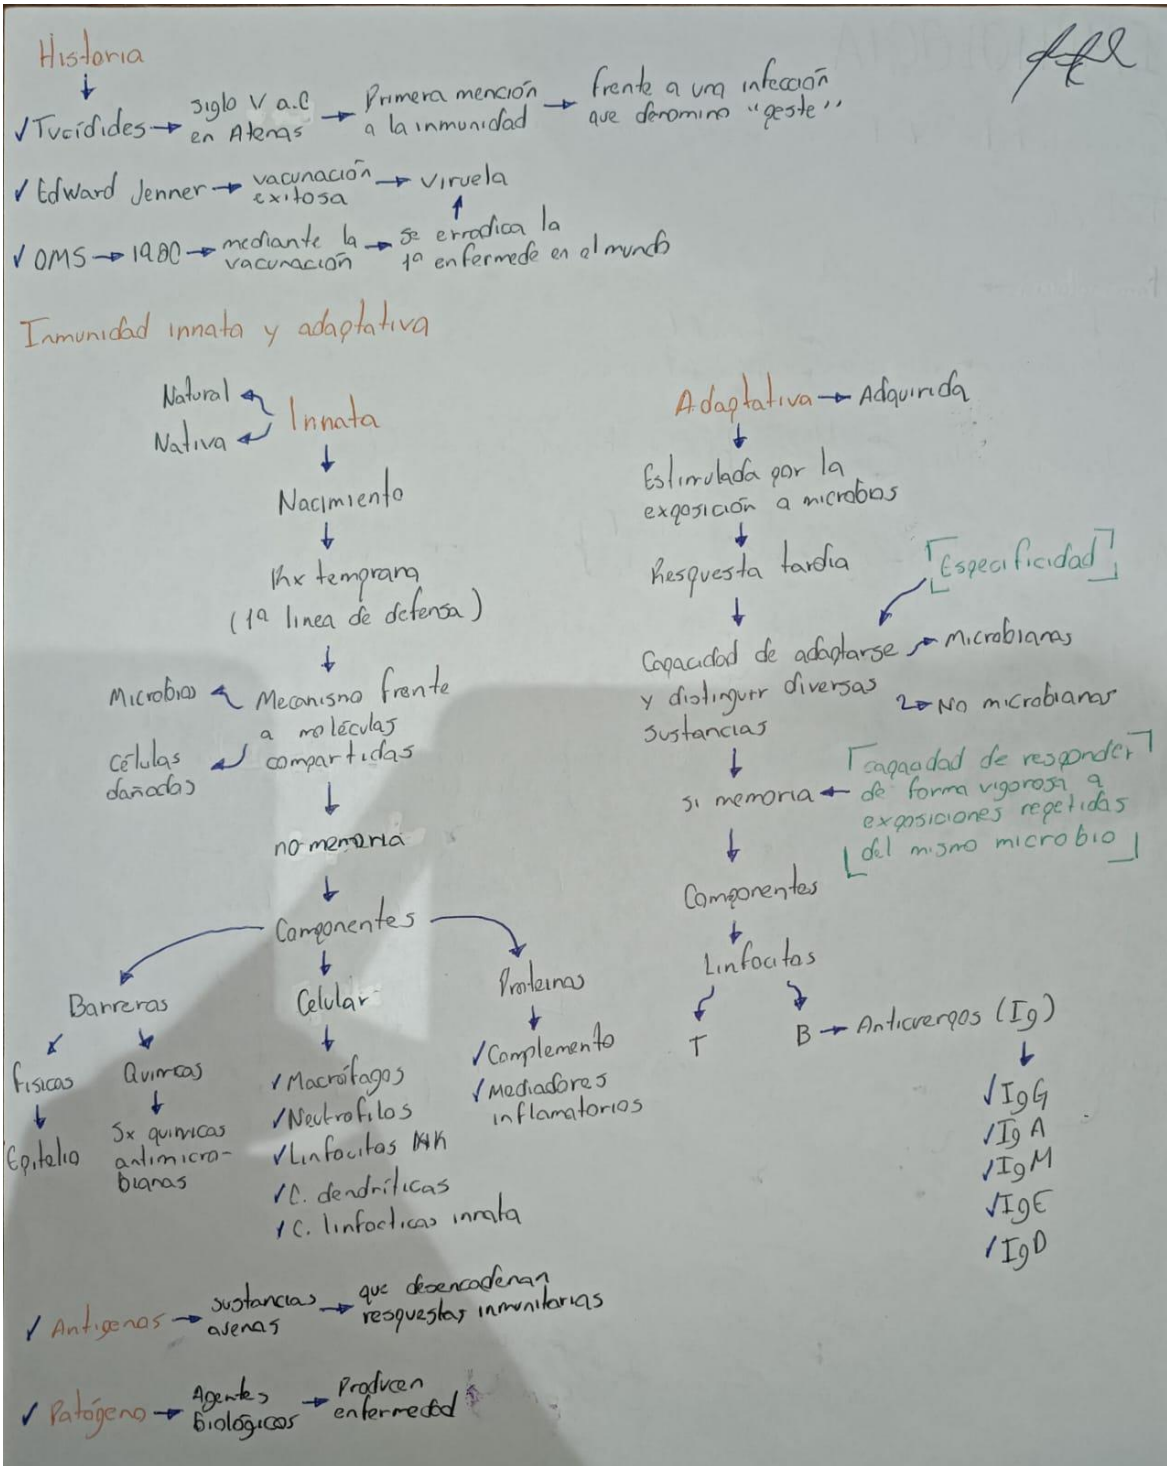 Historia
✓ Tucídides → siglo V a.C en Atenas → Primera mención a la inmunidad → frente a una infección que denomino "peste"
✓ Edward Jenner → vacunación exitosa → viruela
✓ OMS → 1980 → mediante la vacunación → se erradica la 1ª enfermede en el mundo
Inmunidad innata y adaptativa
Natural
Nativa
Innata
Nacimiento
Rx temprana
(1ª linea de defensa)
Microbios
Células dañadas
Mecanismo frente
a moléculas
compartidas
no memoria
Componentes
Barreras
Físicas
Epitelio
Químicas
Sx químicas
antimicro-
bianas
Celular
✓ Macrófagos
✓ Neutrofilos
✓ Linfocitos NK
✓ C. dendríticas
✓ C. linfocticas innata
Proteinas
✓ Complemento
✓ Mediadores
inflamatorios
Adaptativa → Adquirida
Estimulada por la
exposición a microbios
Respuesta tardia
[Especificidad]
Capacidad de adaptarse
y distinguir diversas
sustancias
Microbianas
No microbianas
si memoria
[capacidad de responder
de forma vigorosa a
exposiciones repetidas
del mismo microbio]
Componentes
Linfocitos
T
B → Anticuerpos (Ig)
✓ IgG
✓ IgA
✓ IgM
✓ IgE
✓ IgD
✓ Antigenos → sustancias ajenas → que desencadenan respuestas inmunitarias
✓ Patógeno → Agentes biológicos → Producen enfermedad